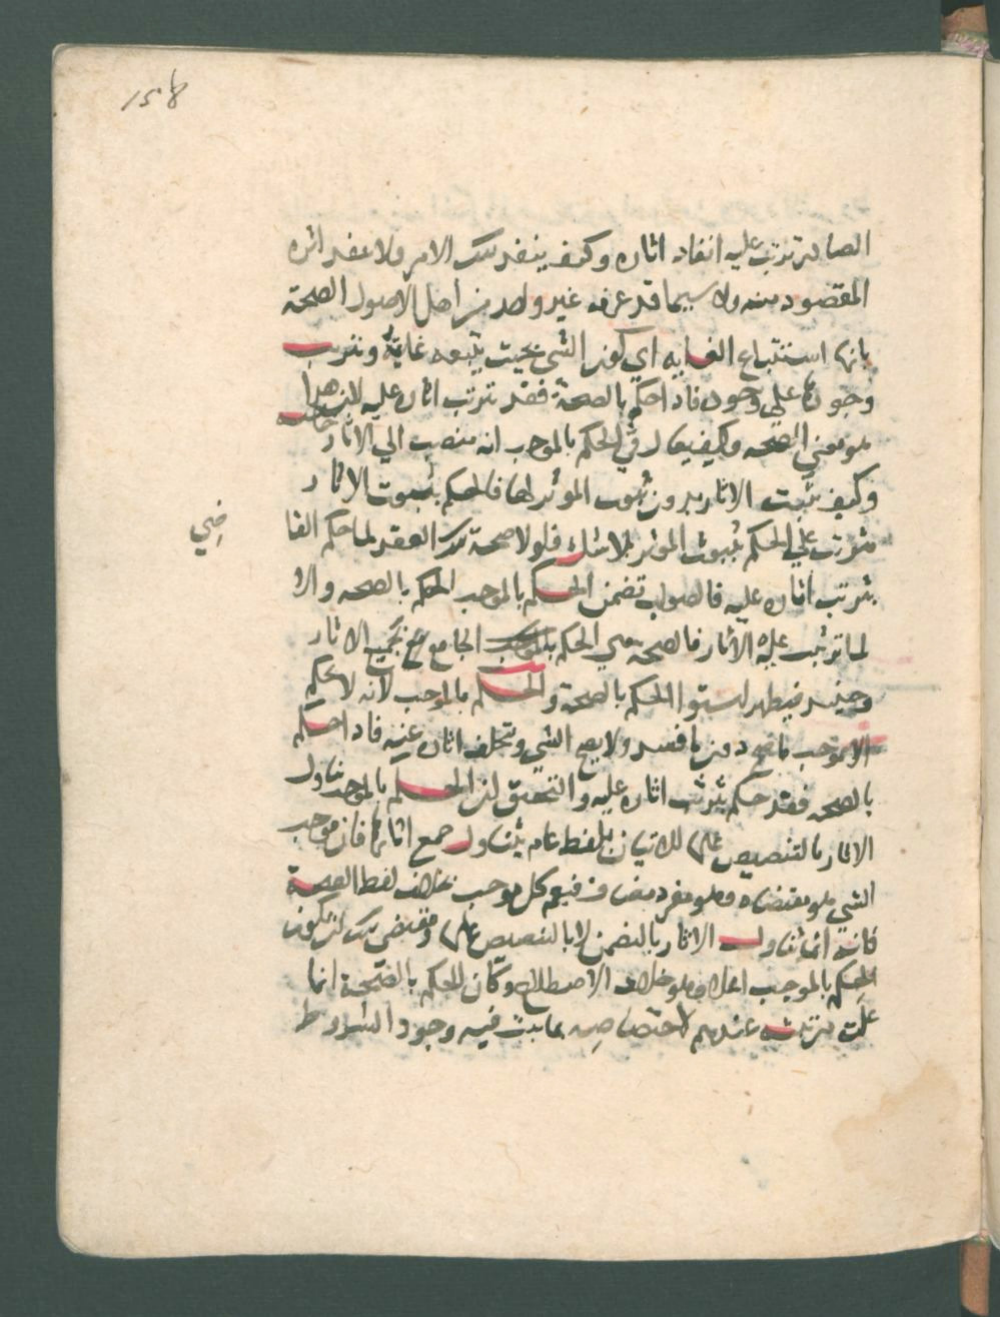 الصادر ترتب عليه انفاد اثاره وكيف ينفد تلك الامر ولا ينفد اثره
المقصود منه ولا سيما قد عرف غير واحد من اهل الاصول الصحة
بانها استتباع الغايه اي كون الشي بحيث يتبعه غايته وتترتب
وجودها علي وجوده فاذا حكم بالصحة فقد ترتب اثاره عليه لان هذا
هو معني الصحه وكيف يقال في الحكم بالموجب انه منصب الي الاثار خاصة
وكيف تثبت الاثار بدون ثبوت الموثر لها فالحكم بثبوت الاثار
مترتب علي الحكم بثبوت الموثر بلا شك فلولا صحة تلك العقد لما حكم القا
ضي
بترتب اثاره عليه فالصواب تضمن الحكم بالموجب الحكم بالصحه والا
لما ترتب عليه الاثار فالصحة هي الحكم الجامع مع جميع الاثار
وحينيد فيظهر استوا الحكم بالصحة والحكم بالموجب لانه لا يحكم
الا بموجب ما صح دون ما فسد ولا يصح الشي وتخلف اثاره عنه فاذا حكم
بالصحه فقد حكم بترتب اثاره عليه والتحقيق ان الحكم بالموجب تناول
الاثار بالتنصيص عليها للاتيان بلفظ عام يتناول جميع اثارها فان موجب
الشي هو مقتضاه وهو مفرد مضاف فيعم كل موجب بخلاف لفظ الصحة
فانه انما تناولت الاثار بالتضمن لا بالتنصيص عليها ومقتضي تلك ان يكون
الحكم بالموجب اعلا وهو خلاف الاصطلاح وكان للحكم بالصحة انما
علت مرتبته عندهم لاختصاصه بما يثبت فيه وجود الشروط